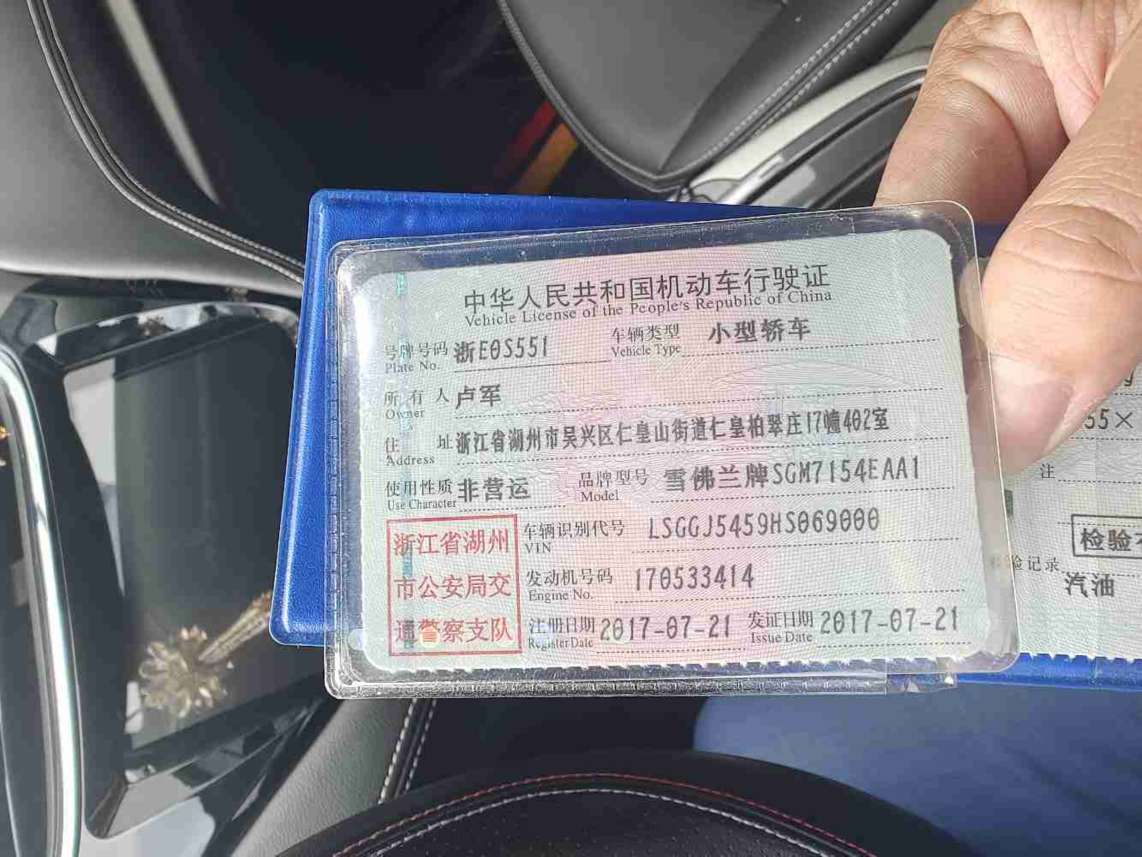 中华人民共和国机动车行驶证
Vehicle License of the People's Republic of China
号牌号码 浙E0S551 车辆类型 小型轿车
Plate No. Vehicle Type
所有人 卢军
Owner
住址 浙江省湖州市吴兴区仁皇山街道仁皇柏翠庄17幢402室
Address
使用性质 非营运 品牌型号 雪佛兰牌SGM7154EAA1
Use Character Model
浙江省湖州
市公安局交
通警察支队
车辆识别代号 LSGGJ5459HS069000
VIN
发动机号码 170533414
Engine No.
注册日期 2017-07-21 发证日期 2017-07-21
Register Date Issue Date
55×
注
检验
验记录
汽油